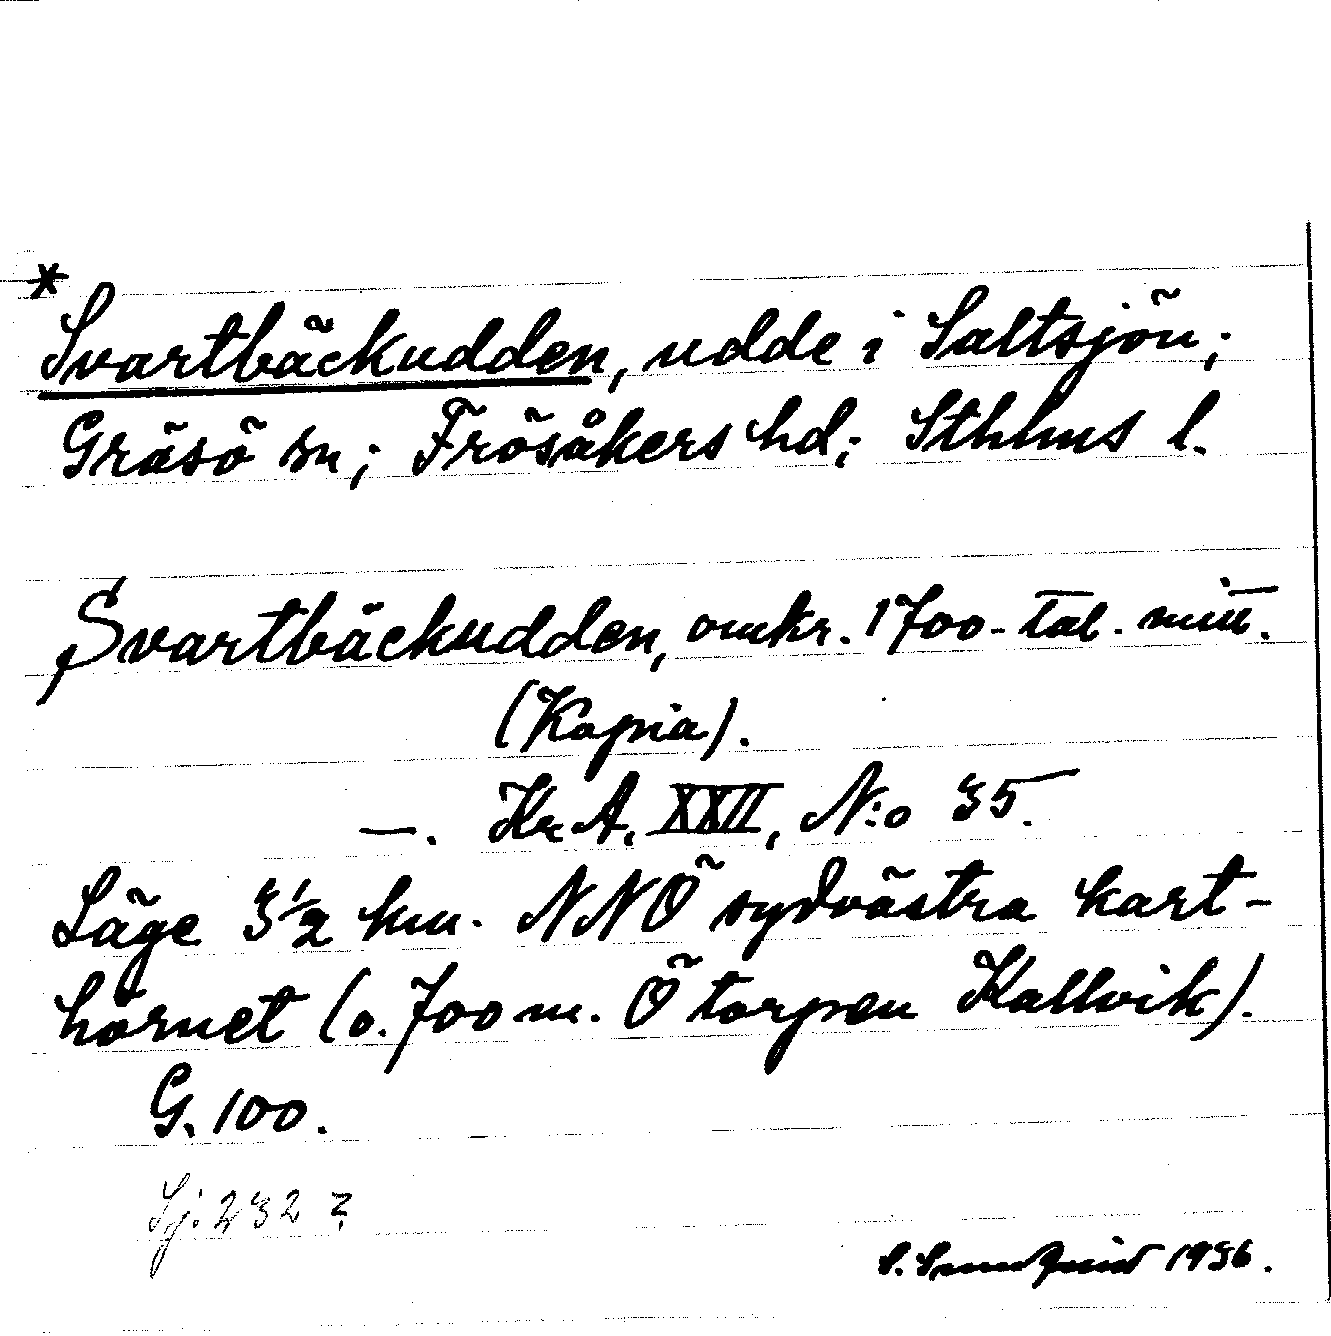 *
Svartbäckudden, udde i Saltsjön;
Gräsö sn; Frösåkers hd; Sthlms l.
Svartbäckudden, omkr. 1700-tal. mitt.
(Kopia).
—. Kr.A. XXII, N:o 35.
Läge 3½ km. NNÖ sydvästra kart-
hörnet (o. 700 m. Ö torpen Kallvik).
G. 100.
Sj. 232?
S. 1936.